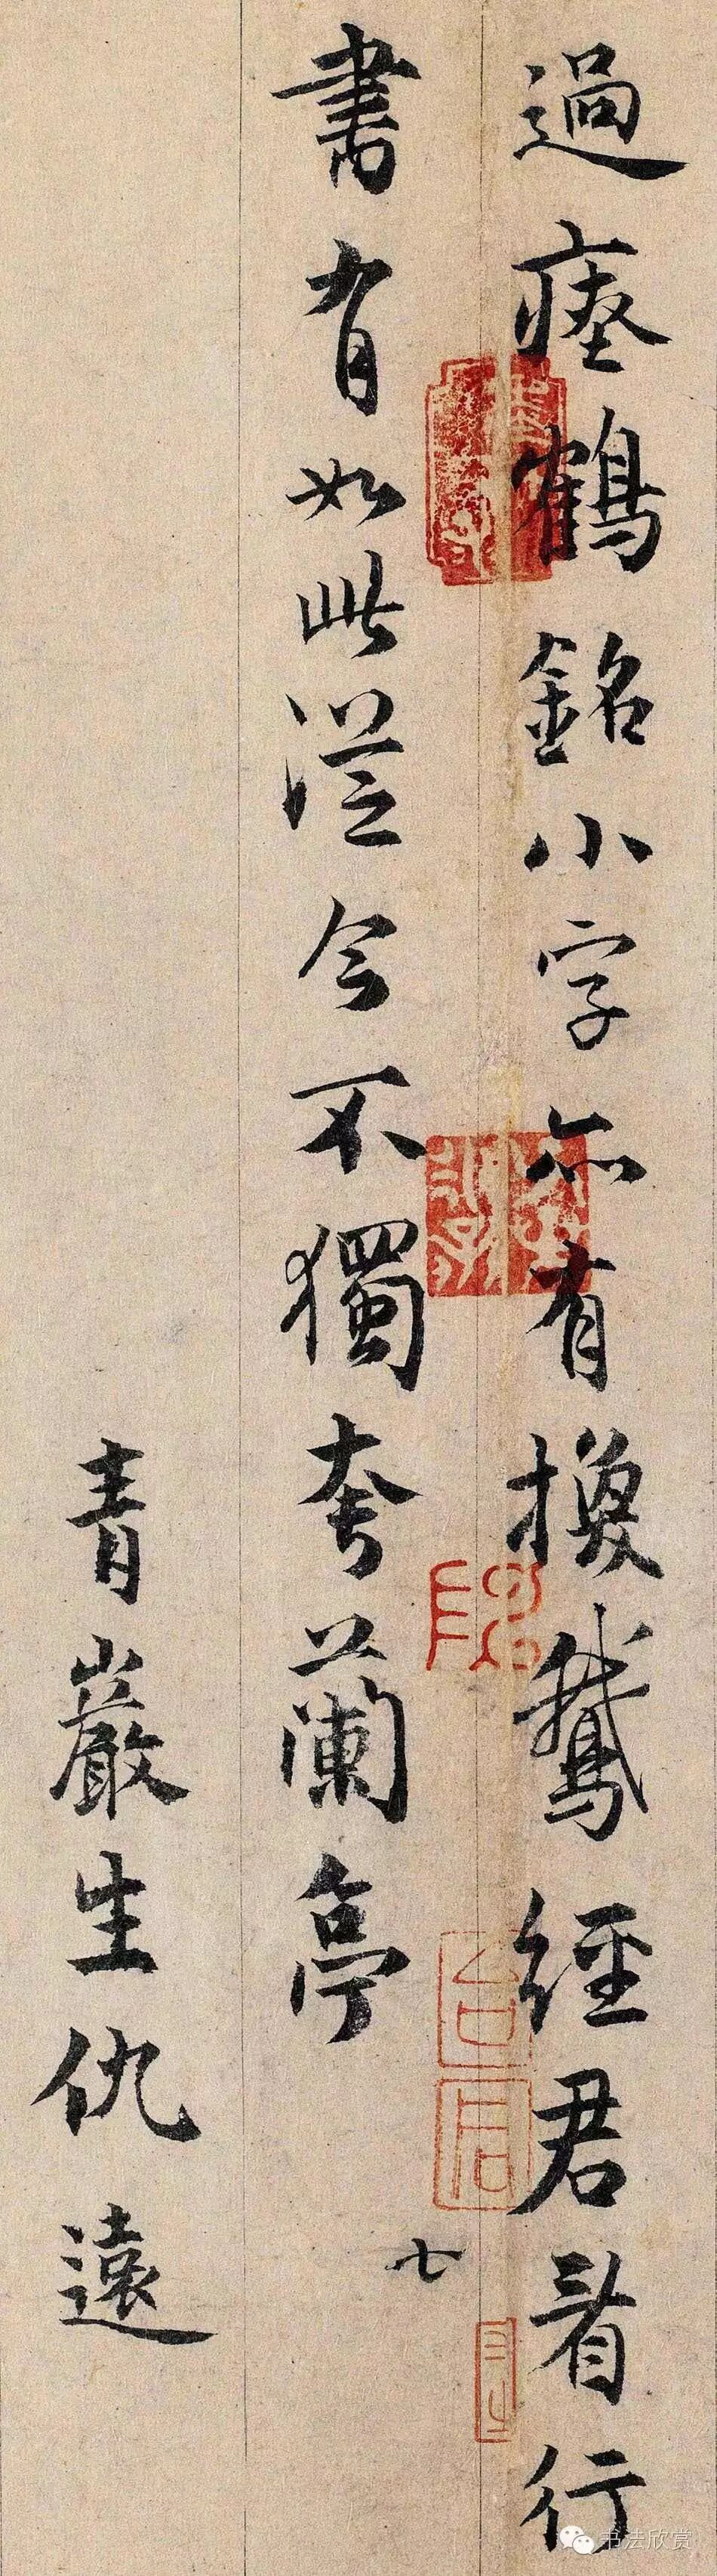 過瘞鶴銘小字亦有換鵝經君看行
書有如此從今不獨夸蘭亭
青巖生仇遠
七
书法欣赏